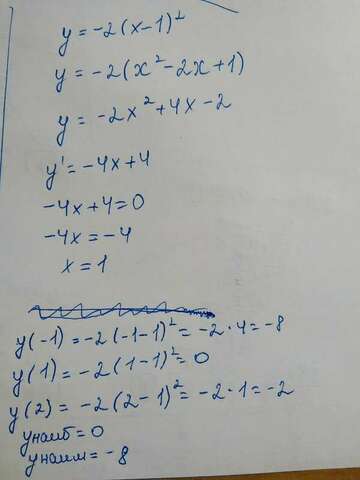 y = -2(x-1)²
y = -2(x²-2x+1)
y = -2x²+4x-2
y' = -4x+4
-4x+4=0
-4x=-4
x=1
y(-1) = -2(-1-1)² = -2·4=-8
y(1) = -2(1-1)²=0
y(2) = -2(2-1)² = -2·1=-2
yнаиб = 0
yнаим = -8